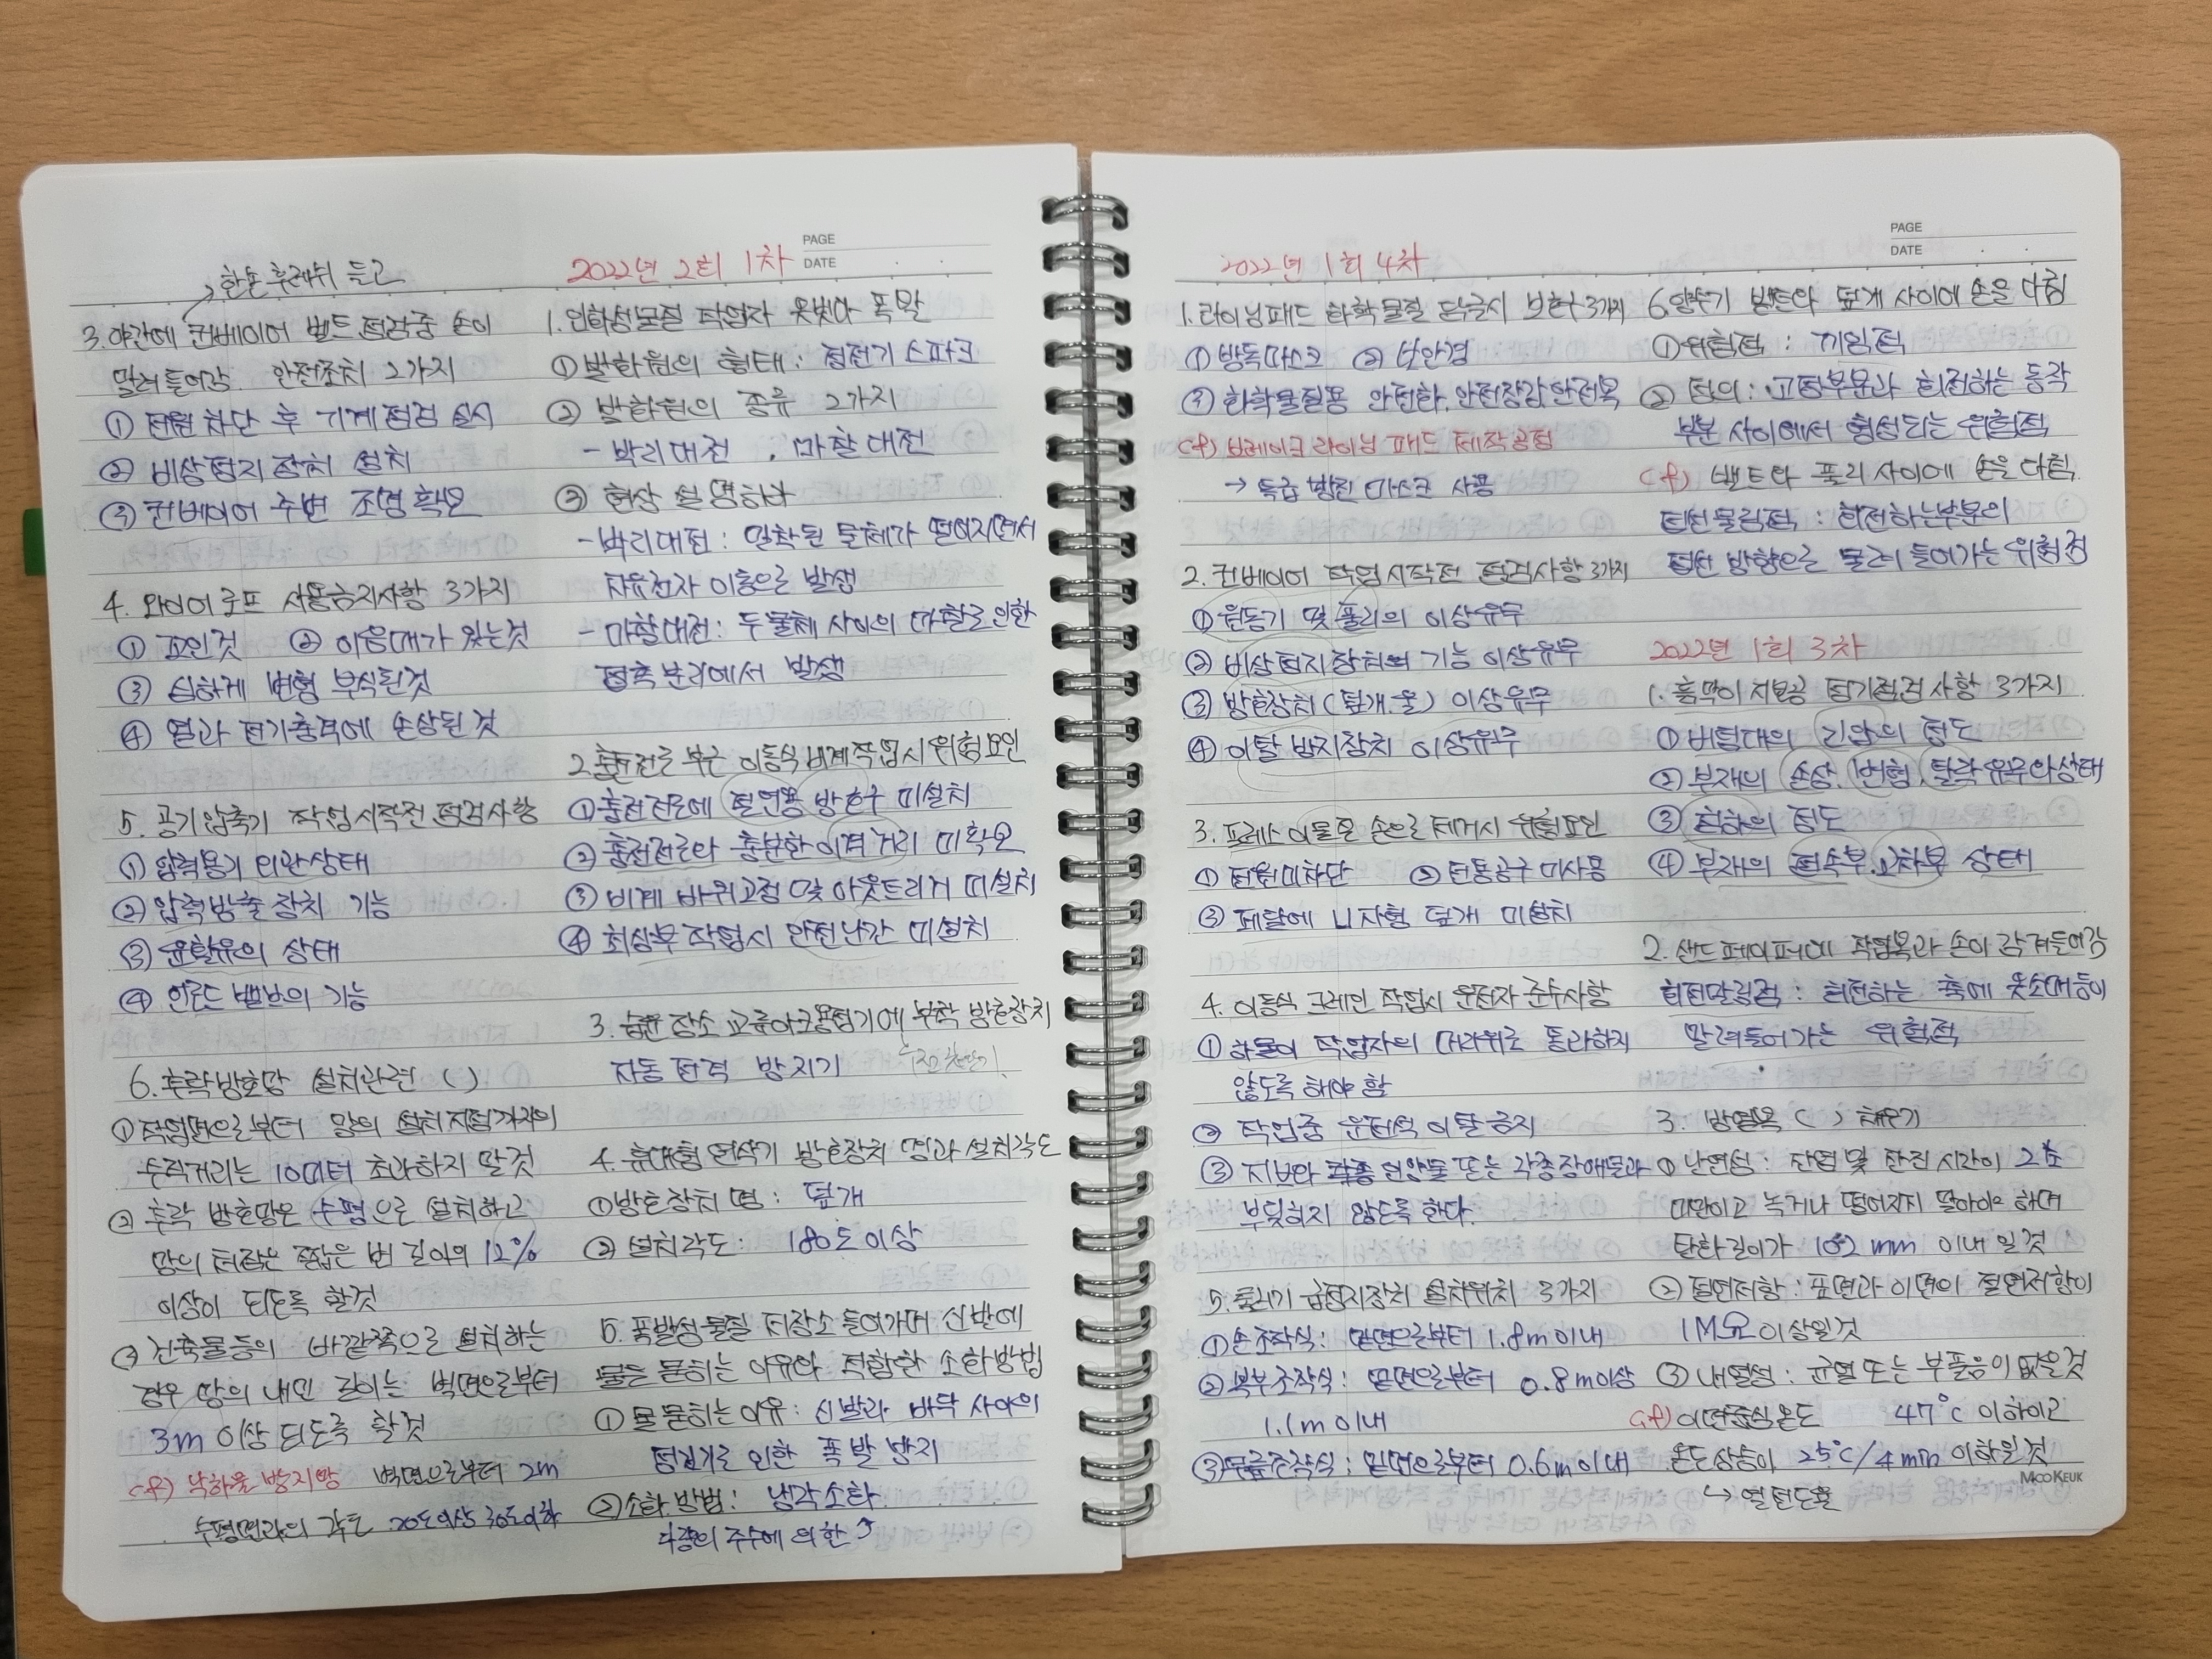 → 한손 후레쉬 들고
3. 야간에 컨베이어 벨트 점검중 손이
말려 들어감. 안전조치 2가지
① 전원 차단 후 기계 점검 실시
② 비상정지 장치 설치
③ 컨베이어 주변 조명 확인
4. 와이어 로프 사용금지사항 3가지
① 꼬인것 ② 이음매가 있는것
③ 심하게 변형 부식된것
④ 열과 전기충격에 손상된 것
5. 공기압축기 작업시작전 점검사항
① 압력용기 외관상태
② 압력방출 장치 기능
③ 윤활유의 상태
④ 언로드 밸브의 기능
6. 추락방호망 설치관련 ( )
① 작업면으로부터 망의 설치지점까지의
수직거리는 10미터 초과하지 말것
② 추락 방호망은 수평으로 설치하고
망의 처짐은 짧은 변 길이의 12%
이상이 되도록 할것
③ 건축물등의 바깥쪽으로 설치하는
경우 망의 내민 길이는 벽면으로부터
3m 이상 되도록 할것
cf) 낙하물 방지망 벽면으로부터 2m
수평면과의 각도 20도이상 30도이하
2022년 2회 1차
PAGE
DATE
1. 인화성물질 작업자 옷벗다 폭발
① 발화원의 형태 : 정전기 스파크
② 발화원의 종류 2가지
- 박리대전, 마찰대전
③ 현상 설명하라
- 박리대전 : 밀착된 물체가 떨어지면서
자유전자 이동으로 발생
- 마찰대전 : 두 물체 사이의 마찰로 인한
접촉 분리에서 발생
2. 충전전로 부근 이동식 비계작업시 위험요인
① 충전전로에 절연용 방호구 미설치
② 충전전로와 충분한 이격거리 미확인
③ 비계 바퀴고정 및 아웃트리거 미설치
④ 최상부 작업시 안전난간 미설치
3. 습윤 장소 교류아크용접기에 부착 방호장치
자동 전격 방지기 누전차단기
4. 휴대형 연삭기 방호장치 명과 설치각도
① 방호장치 명 : 덮개
② 설치각도 : 180도 이상
5. 폭발성물질 저장소 들어가며 신발에
물을 묻히는 이유와 적합한 소화방법
① 물 묻히는 이유 : 신발과 바닥 사이의
정전기로 인한 폭발 방지
② 소화 방법 : 냉각소화
다량의 주수에 의한
2022년 1회 4차
1. 라이닝패드 화학물질 취급시 보호구 3가지
① 방독마스크 ② 보안경
③ 화학물질용 안전화, 안전장갑, 안전복
cf) 브레이크 라이닝 패드 제작공정
→ 특급 방진 마스크 사용
2. 컨베이어 작업시작전 점검사항 3가지
① 원동기 및 풀리의 이상유무
② 비상정지장치의 기능 이상유무
③ 방호장치 (덮개.울) 이상유무
④ 이탈 방지장치 이상유무
3. 프레스 이물질 손으로 제거시 위험요인
① 전원미차단 ② 전용공구 미사용
③ 페달에 U자형 덮개 미설치
4. 이동식 크레인 작업시 운전자 준수사항
① 하물이 작업자의 머리위로 통과하지
않도록 해야 함
② 작업중 운전석 이탈금지
③ 지브와 인양물 또는 각종장애물과
부딪히지 않도록 한다.
5. 롤러기 급정지장치 설치위치 3가지
① 손조작식 : 밑면으로부터 1.8m 이내
② 복부조작식 : 밑면으로부터 0.8m이상
1.1m 이내
③ 무릎조작식 : 밑면으로부터 0.6m 이내
PAGE
DATE
6. 양수기 벨트와 덮개 사이에 손을 다침
① 위험점 : 끼임점
② 정의 : 고정부분과 회전하는 동작
부분 사이에서 형성되는 위험점
cf) 벨트와 풀리 사이에 손을 다침
접선물림점 : 회전하는부분의
접선 방향으로 물려 들어가는 위험점
2022년 1회 3차
1. 흙막이 지보공 정기점검 사항 3가지
① 버팀대의 긴압의 정도
② 부재의 손상, 변형, 탈락 유무와상태
③ 침하의 정도
④ 부재의 접속부, 교차부 상태
2. 샌드페이퍼에 작업복과 손이 감겨들어감
회전말림점 : 회전하는 축에 옷소매등이
말려들어가는 위험점
3. 방열복 ( ) 채우기
① 난연성 : 잔염 및 잔진 시간이 2초
미만이고 녹거나 떨어지지 말아야 하며
탄화길이가 102 mm 이내 일것
② 절연저항 : 표면과 이면의 절연저항이
1MΩ 이상일것
③ 내열성 : 균열 또는 부풀음이 없을것
cf) 이면중심온도 47℃ 이하이고
온도상승이 25℃/4min 이하일것
↳ 열전도율
MOOKEUK